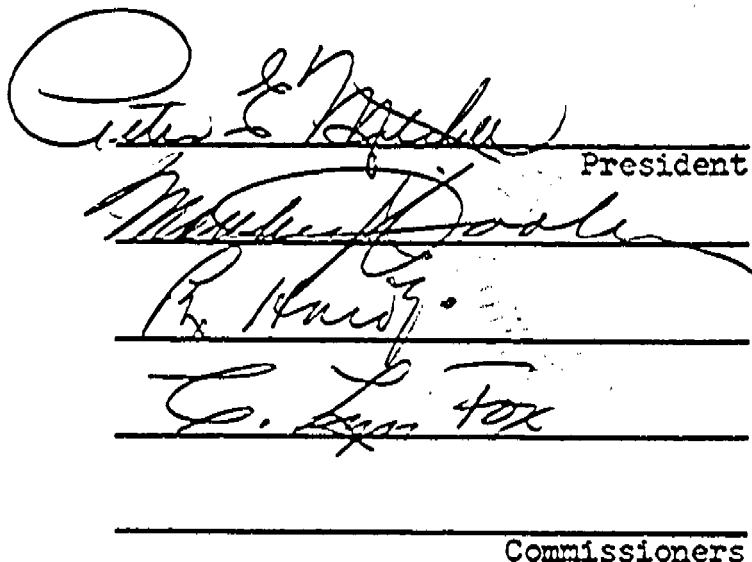 Peter E Mitchell
President
Matthew J Dooley
Hardy
C. Lyn Fox
Commissioners